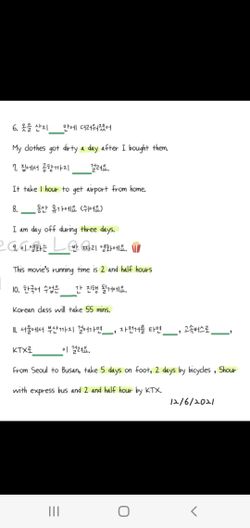 6. 옷을 산지 ___만에 더러워졌어
My clothes got dirty a day after I bought them.
7. 집에서 공항까지 ___걸려요.
It take 1 hour to get airport from home.
8. ___동안 휴가예요. (쉬어요)
I am day off during three days.
9. 이 영화는 ___반 짜리 영화에요.
This movie's running time is 2 and half hours
10. 한국어 수업은 ___간 진행 될거에요.
Korean class will take 55 mins.
11. 서울에서 부산까지 걸어가면___, 자전거를 타면 ___, 고속버스로 ___,
KTX로 ___이 걸려요.
From Seoul to Busan, take 5 days on foot, 2 days by bicycles, 5hour
with express bus and 2 and half hour by KTX.
12/6/2021